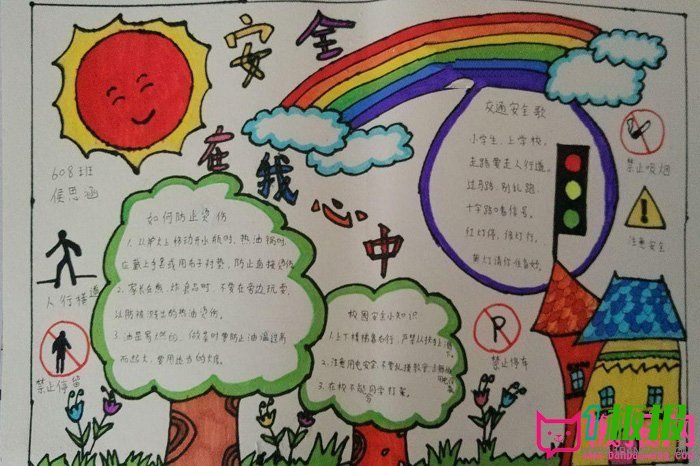 安全
在我心中
608班
侯思涵
交通安全歌
小学生,上学校。
走路要走人行道。
过马路,别乱跑。
十字路口看信号。
红灯停,绿灯行。
黄灯请你准备好。
禁止吸烟
注意安全
人行横道
禁止停留
禁止停车
如何防止烫伤
1.从炉火上移动开水瓶时,热油锅时
应戴上手套或用布子衬垫,防止直接烫伤
2.家长在煎、炸食品时,不要在旁边玩耍,
以防被溅出的热油烫伤。
3.油是易燃的,做菜时要防止油温过高
而起火。
校园安全小知识
1.上下楼梯靠右行,严禁从扶手上滑下。
2.注意用电安全,不要乱摸教室
3.在校不能同学打架。
板报